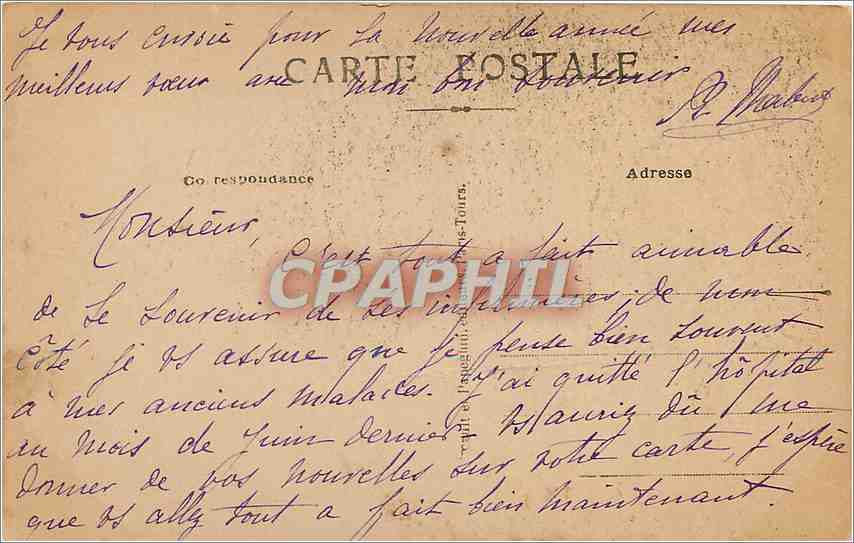 Je vous envoie pour la nouvelle année mes
meilleurs vœux avec mon bon souvenir
CARTE POSTALE
Correspondance
Adresse
Monsieur,
C'est tout à fait aimable
de se souvenir de ses infirmières; de mon
côté je vs assure que je pense bien souvent
à mes anciens malades. J'ai quitté l'hôpital
au mois de Juin dernier vs auriez dû me
donner de vos nouvelles sur votre carte, j'espère
que vs allez tout à fait bien maintenant.
CPAPHIL